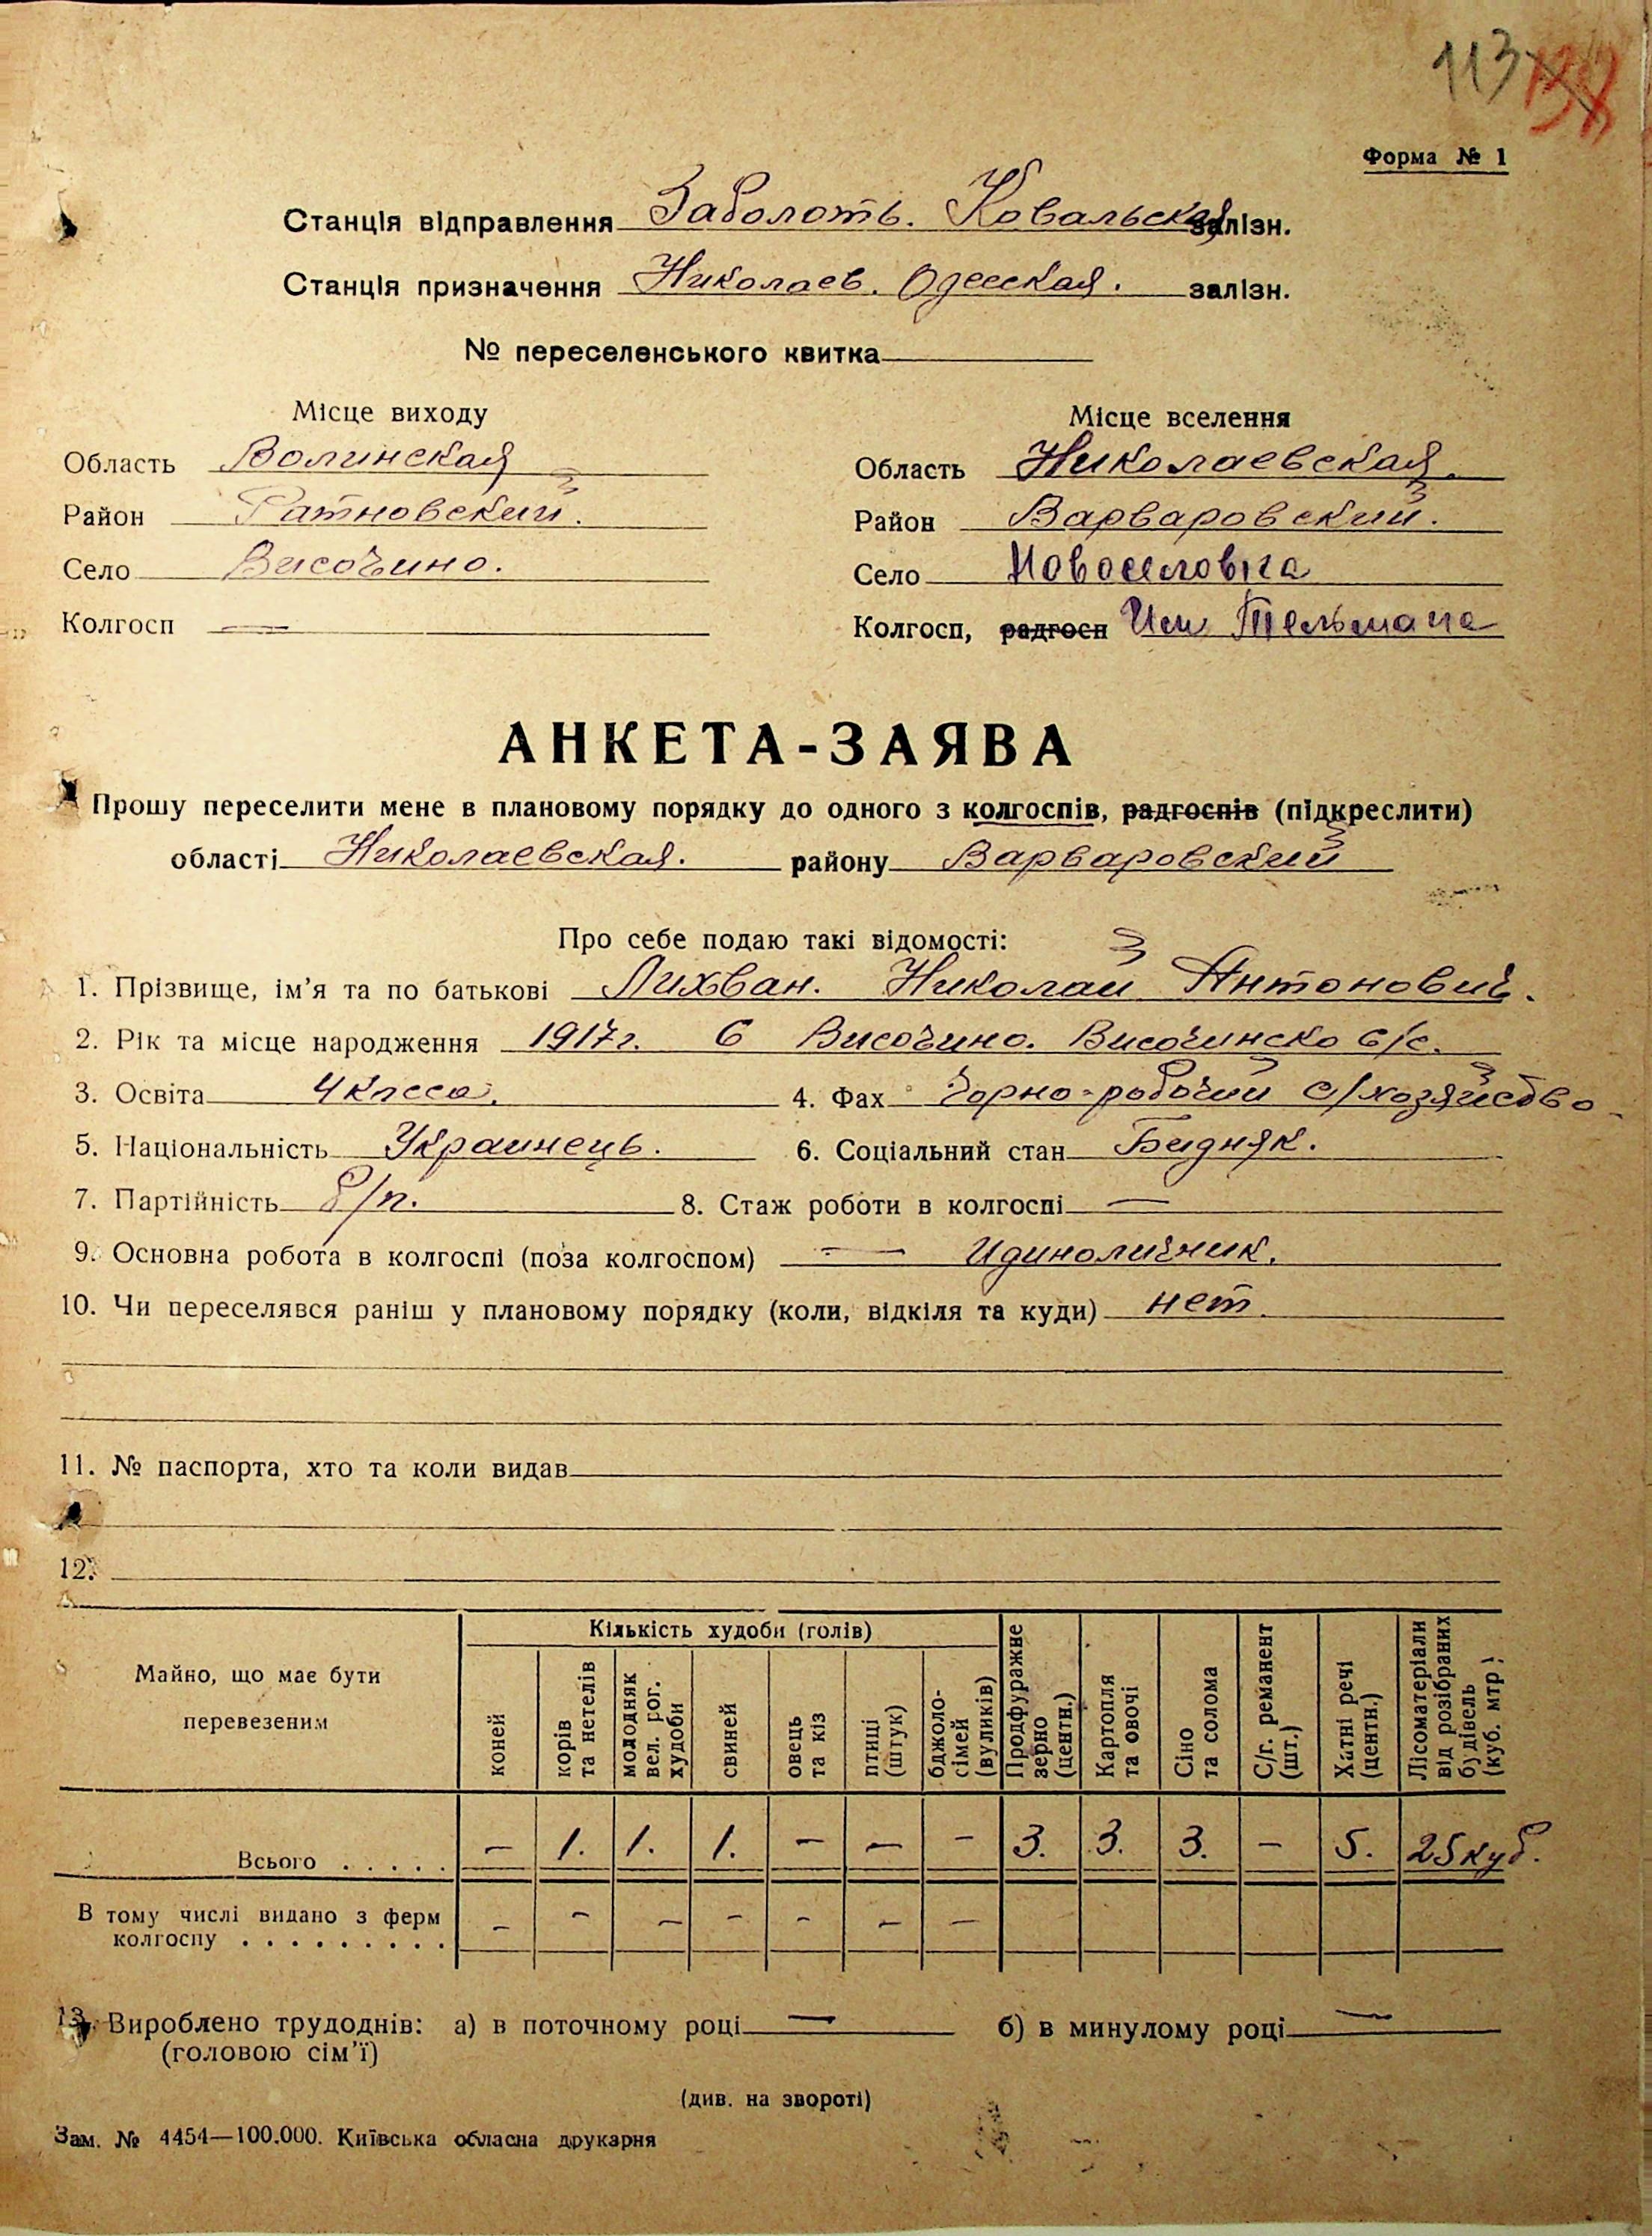 113 138
Форма № 1
Станція відправлення Заболоть. Ковальская залізн.
Станція призначення Николаев. Одесская. залізн.
№ переселенського квитка
Місце виходу Місце вселення
Область Волинская Область Николаевская.
Район Ратновский. Район Варваровский.
Село Височино. Село Новоселовка
Колгосп — Колгосп, радгосп Им Тельмана
АНКЕТА-ЗАЯВА
Прошу переселити мене в плановому порядку до одного з колгоспів, радгоспів (підкреслити)
області Николаевская. району Варваровский
Про себе подаю такі відомості:
1. Прізвище, ім'я та по батькові Лихван. Николай Антонович.
2. Рік та місце народження 1917г. б Височино. Височинско с/с.
3. Освіта 4 класса. 4. Фах Чорно-робочий с/хозяйство
5. Національність Украинець. 6. Соціальний стан Бидняк.
7. Партійність б/п. 8. Стаж роботи в колгоспі —
9. Основна робота в колгоспі (поза колгоспом) — Идиноличник.
10. Чи переселявся раніш у плановому порядку (коли, відкіля та куди) нет.
11. № паспорта, хто та коли видав
12.
Майно, що має бути перевезеним
Кількість худоби (голів)
коней
корів та нетелів
молодняк вел. рог. худоби
свиней
овець та кіз
птиці (штук)
бджоло-сімей (вуликів)
Продфуражне зерно (центн.)
Картопля та овочі
Сіно та солома
С/г. реманент (шт.)
Хатні речі (центн.)
Лісоматеріали від розібраних будівель (куб. мтр)
Всього . . . . . — 1. 1. 1. — — — 3. 3. 3. — 5. 25 куб.
В тому числі видано з ферм
колгоспу . . . . . . . . . — — — — — — —
13. Вироблено трудоднів: а) в поточному році — б) в минулому році —
(головою сім'ї)
(див. на звороті)
Зам. № 4454—100.000. Київська обласна друкарня